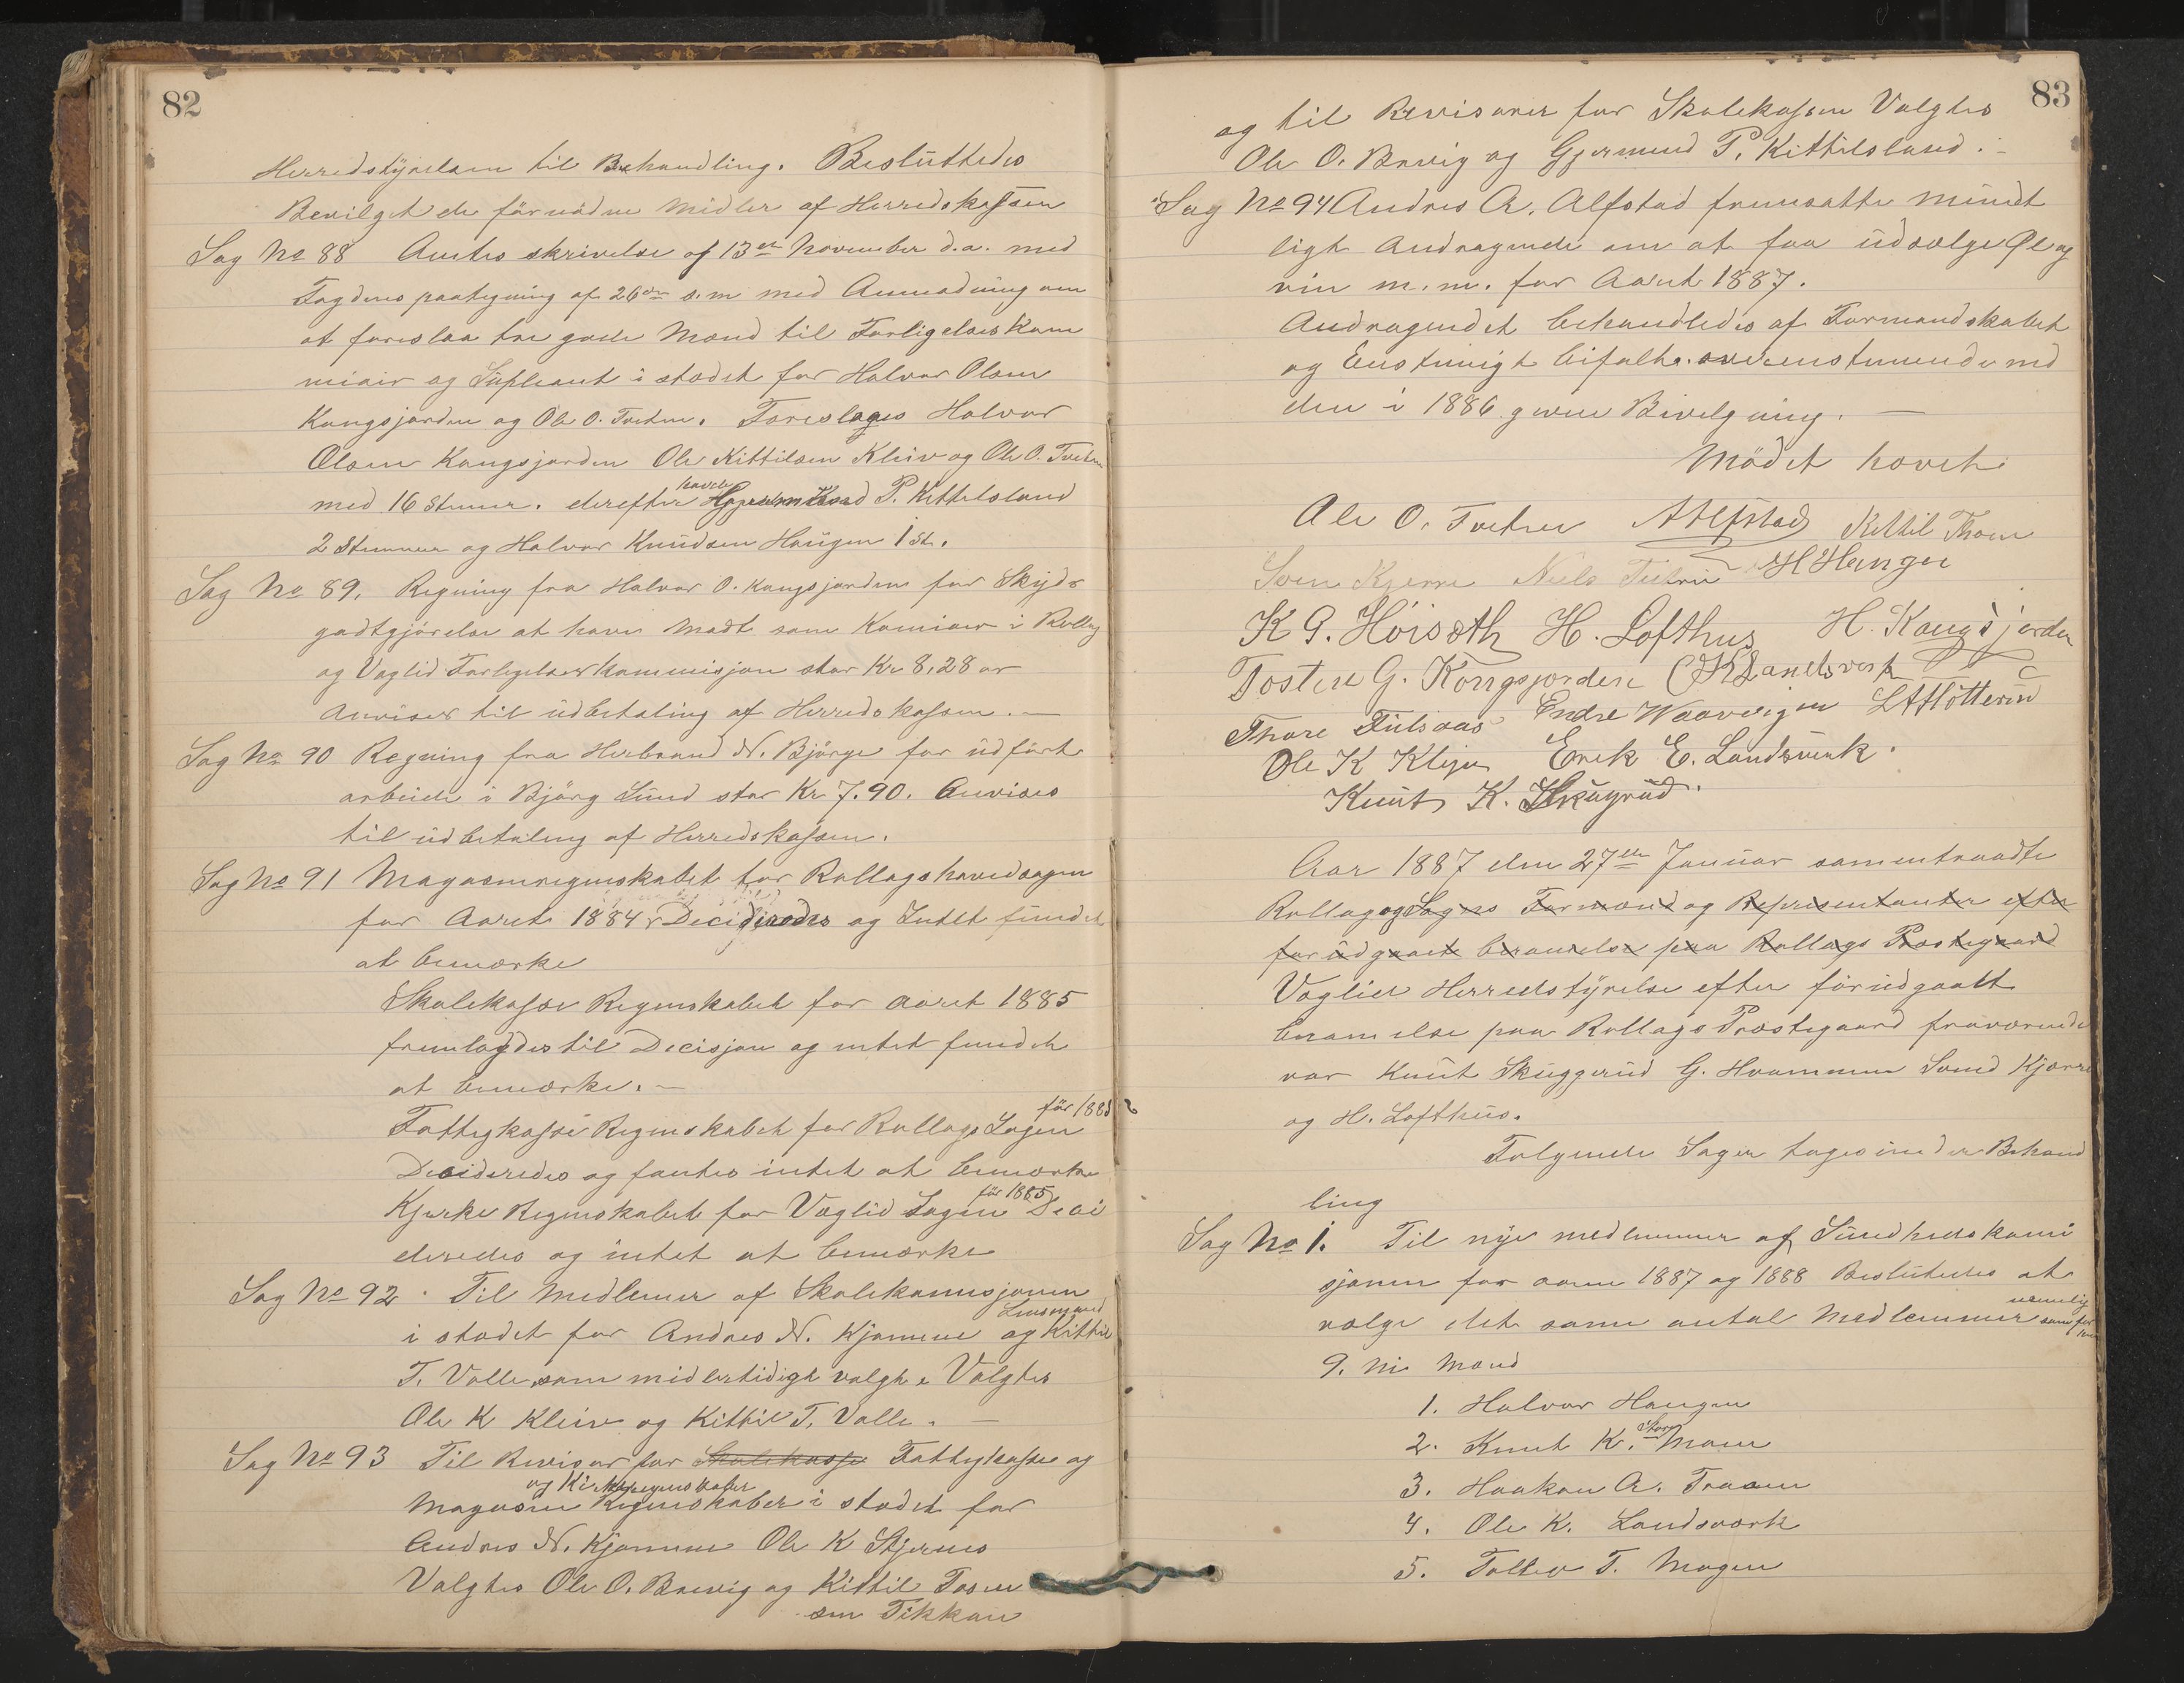 82
Herredstyrelsen til Behandling. Besluttedes
Bevilget de förnödne Midler af Herredskassen
Sag No 88 Amtes skrivelse af 13de November d.a. med
Fogdens paategning af 26de s.m med Anmodning om
at foreslaa tre gode Mænd til Forligelses Kom
misær og Supleant i stædet for Halvor Olsen
Kongsjorden og Ole O. Tveten. Foreslages Halvor
Olsen Kongsjorden Ole Kittilsen Kleiv og Ole O. Tveten
med 16 Stemer. derefter havde P. Kittelsland
2 Stemmer og Halvor Knudsen Haugen 1 St.
Sag No 89. Regning fra Halvor O. Kongsjorden for Skyds
godtgjörelse at have Mødt som Komisær i Rollag
og Væglid Forligelseskommisjon stor Kr 8,28 ør
Anvises til üdbetaling af Herredskassen. —
Sag No 90 Regning fra Herbrand N. Björge for üdfört
arbeide i Björg Sund stor Kr 7.90. Anvises
til üdbetaling af Herredskassen.
Sag No 91 Magasinregnskabet for Rollags hovedsogn
for Aaret 1884 Decideredes og Intet fundet
at bemærke
Skolekasse Regnskabet for aaret 1885
fremlagdes til Decisjon og intet fundet
at bemærke. —
för 1885
Fattigkasse Regnskabet for Rollags Sogn
Decideredes og fantes intet at bemærke
för 1885
Kjerke Regnskabet for Væglid Sogn Deci
deredes og intet at bemærke
Sag No 92 Til Medlemer af Skolekommisjonen
Lensmand
i stædet for Andres N. Kjomme og Kittil
T. Valle, som midlertidigt valgte Valgtes
Ole K Kleiv og Kittil T. Valle. —
Sag No 93 Til Revisor for Skolekasse Fattigkasse og
og Kirkeregnskaber
Magasin Regnskaber i stædet for
Andres N. Kjomme Ole K Stjernes
Valgtes Ole O. Brevig og Kittil Tosen
son Fikkan
83
og til Revisorer for Skolekassen Valgtes
Ole O. Brevig og Gjermund P. Kittilsland. —
Sag No 94 Andres A. Alfstad fremsatte mündt
ligt Andragende om at faa üdsælge Øl og
vin m.m. for Aaret 1887.
Andragendet behandledes af Formandskabet
og Enstemigt bifalt overenstemmende med
den i 1886 givne Bevilgning. —
Mödet hævet
Ole O. Tveten A Alfstad Kittil Thoen
Sven Kjerre Niels Tvetene H Haugen
K G. Höisæth H. Lofthus H. Kongsjorden
Tosten G. Kongsjorden O K Landsverk
Thore Fulsaas Endre Waavergen
Ole K Klejv Erik E. Landsverk.
Knut K. Skugrud.
Aar 1887 den 27de Januar sammentraadte
Rollag og Sogns Formænd og Representanter efter
forüdgaaet berammelse paa Rollags Præstegaard
Væglier Herredstyrelse efter forüdgaatt
beramelse paa Rollags Præstegaard fraværende
var Knüt Skuggerüd G. Hvammen Svend Kjerre
og H. Lofthüs.
Følgende Sager toges under Behand
ling
Sag No 1. Til nye medlemmer af Sundhedskomi
sjonen for aarene 1887 og 1888 Beslutedes at
nemlig
vælge det samme antal Medlemmer som för
9. ni Mænd
1. Halvor Haugen
Store
2. Knut K. Moen
3. Haakon A. Traaen
4. Ole K. Landsværk
5. Tollev T. Mogen